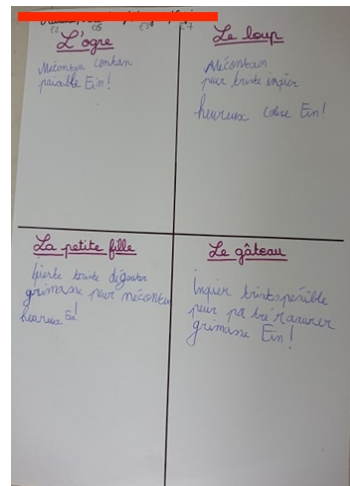 L'ogre
Mécontan contan
pénible Ein !
Le loup
Mécontan
peur triste inqier
heureux colère Ein !
La petite fille
fierte triste dégouter
grimasse peur mécontan
heureux Ein !
Le gâteau
Inqier triste pénible
peur pa tré rasurer
grimasse Ein !